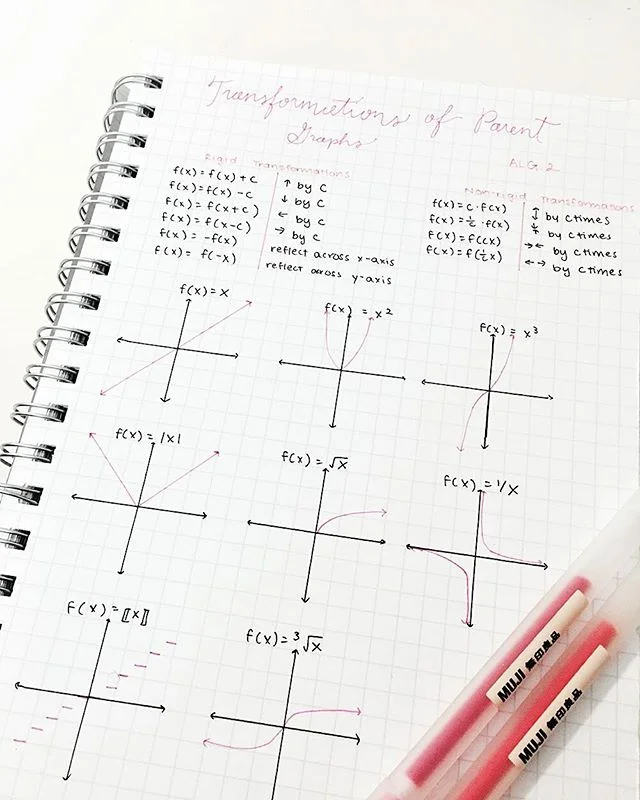 Transformations of Parent
Graphs
ALG. 2
Rigid Transformations
f(x) = f(x) + c ↑ by c
f(x) = f(x) - c ↓ by c
f(x) = f(x+c) ← by c
f(x) = f(x-c) → by c
f(x) = -f(x) reflect across x-axis
f(x) = f(-x) reflect across y-axis
Non-rigid Transformations
f(x) = c·f(x) ↕ by c times
f(x) = 1/c · f(x) by c times
f(x) = f(cx) →← by c times
f(x) = f(1/c x) ←→ by c times
f(x) = x
f(x) = x²
f(x) = x³
f(x) = |x|
f(x) = √x
f(x) = 1/x
f(x) = ⟦x⟧
f(x) = ³√x
MUJI 無印良品
MUJI 無印良品